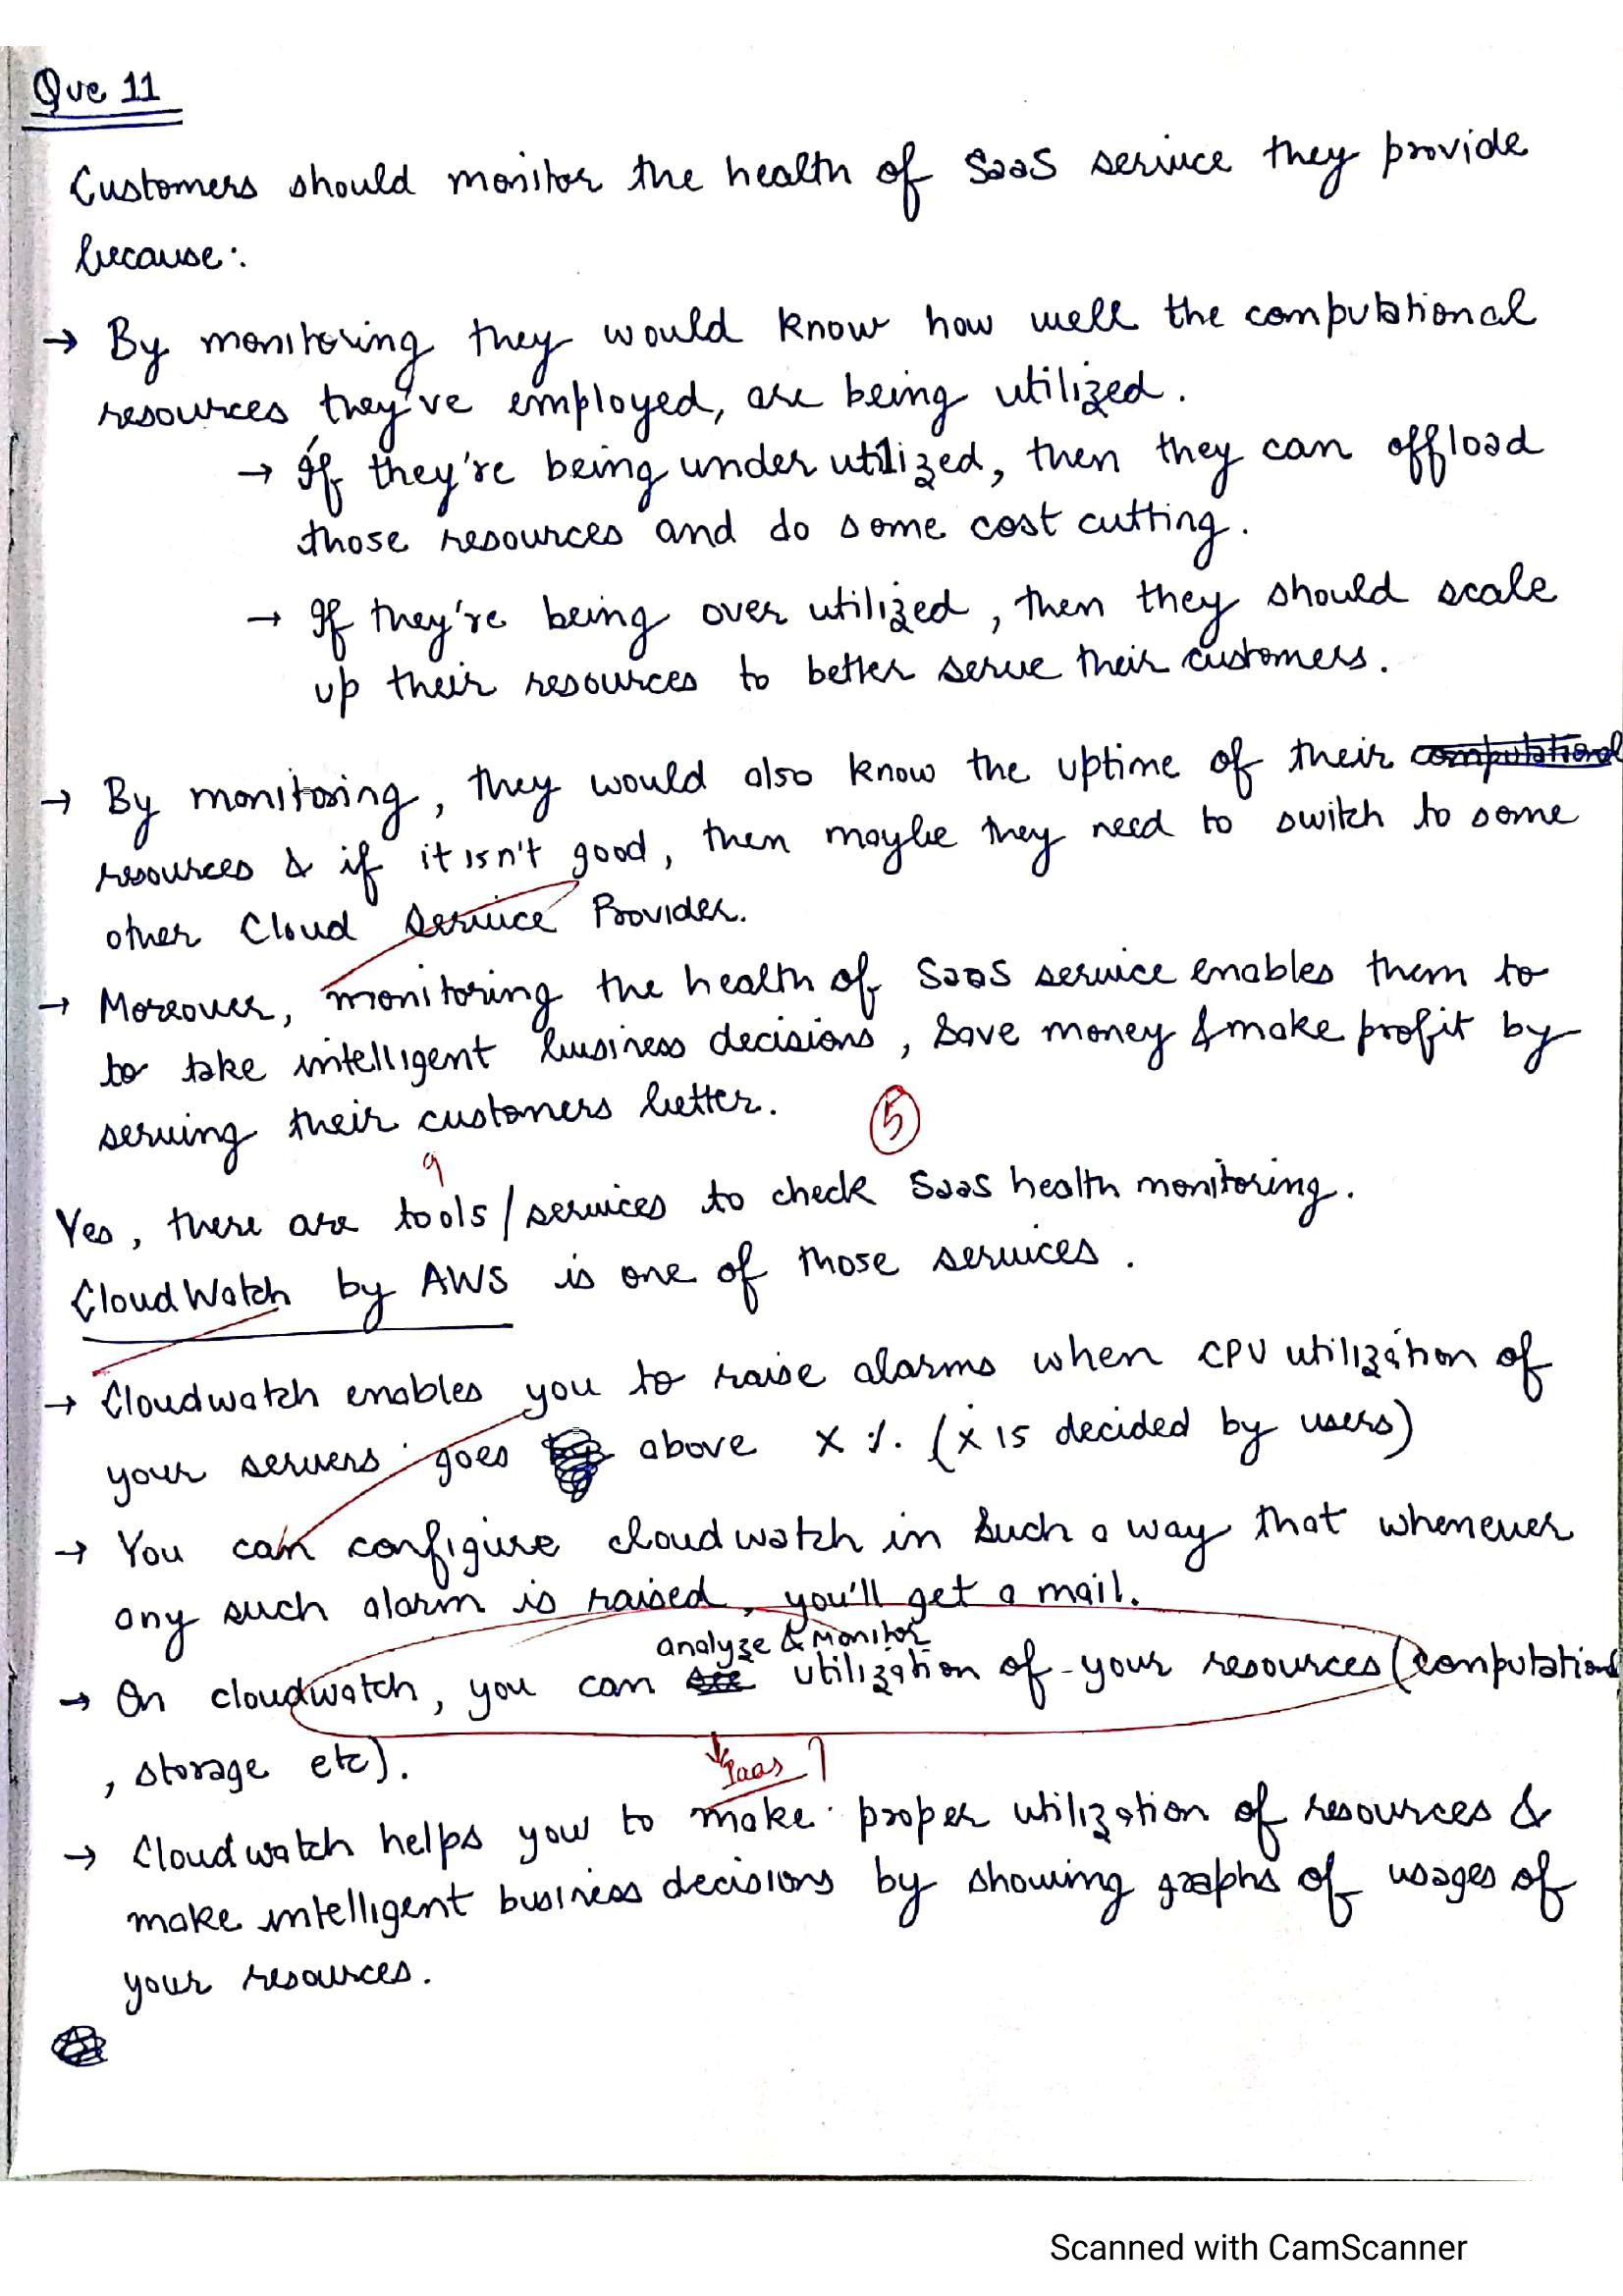 Que 11
Customers should monitor the health of SaaS service they provide
because:
→ By monitoring they would know how well the computational
resources they've employed, are being utilized.
→ If they're being under utilized, then they can offload
those resources and do some cost cutting.
→ If they're being over utilized, then they should scale
up their resources to better serve their customers.
→ By monitoring, they would also know the uptime of their computational
resources & if it isn't good, then maybe they need to switch to some
other Cloud Service Provider.
→ Moreover, monitoring the health of SaaS service enables them to
to take intelligent business decisions, save money & make profit by
serving their customers better.
5
Yes, there are tools/services to check SaaS health monitoring.
CloudWatch by AWS is one of those services.
→ Cloudwatch enables you to raise alarms when CPU utilization of
your servers goes above X %. (x is decided by users)
→ You can configure cloudwatch in such a way that whenever
any such alarm is raised, you'll get a mail.
analyze & monitor
→ On cloudwatch, you can utilization of your resources (computation
, storage etc).
→ Cloudwatch helps you to make proper utilization of resources &
make intelligent business decisions by showing graphs of usages of
your resources.
Scanned with CamScanner